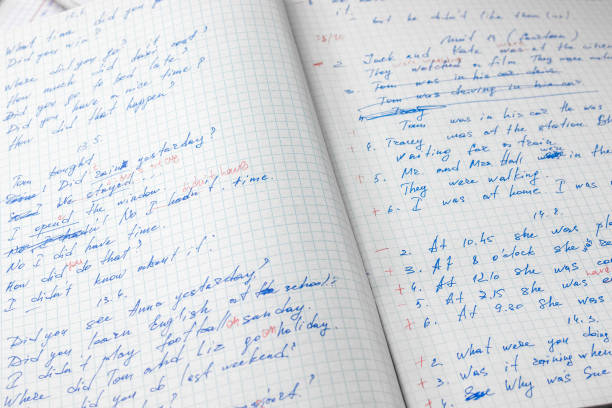 What time did you go
Did you win?
Where did you go?
How much did it cost?
Did you go to bed late?
Did you have a nice time?
How did that happen?
13.5.
Tom bought
! Did rain yesterday?
We stayed
I opend the window
No I hadn't time.
No I did have time.
How did you do that?
I didn't know about it.
13.4.
Did you see Anna yesterday?
Did you learn English at the school?
I didn't play football on sunday.
Where did Tom and Liz go on holiday.
you do last weekend?
it, but he didn't like them
28/30
Unit 13
- 2. Jack and Kate was were at the
They watched a film. They were
3. Tom was in his car
Tom was driving in his car
Tracy
Tom was in his car the was
+ 4. Tracey was at the station. She
Waiting for a train.
+ 5. Mr and Mrs Hall were in the
They were walking.
+ 6. I was at home I was
14.2.
- 2. At 10.45 she was
+ 3. At 8 o'clock she's
+ 4. At 12.10 she was
- 5. At 2.15 she was
+ 6. At 9.30 she was
14.3.
+ 2. What were you doing
+ 3. Was it raining when
+ 4. Why was Sue